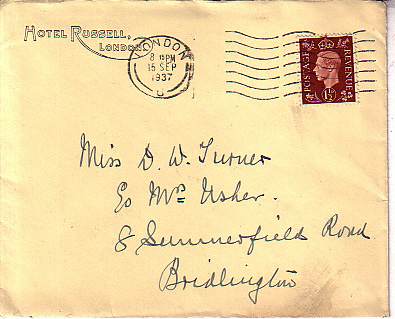 HOTEL RUSSELL,
LONDON
LONDON
8 15PM
15 SEP
1937
C
POSTAGE
REVENUE
1½D
Miss D. W. Turner
c/o Mrs Usher.
8 Summerfield Road
Bridlington